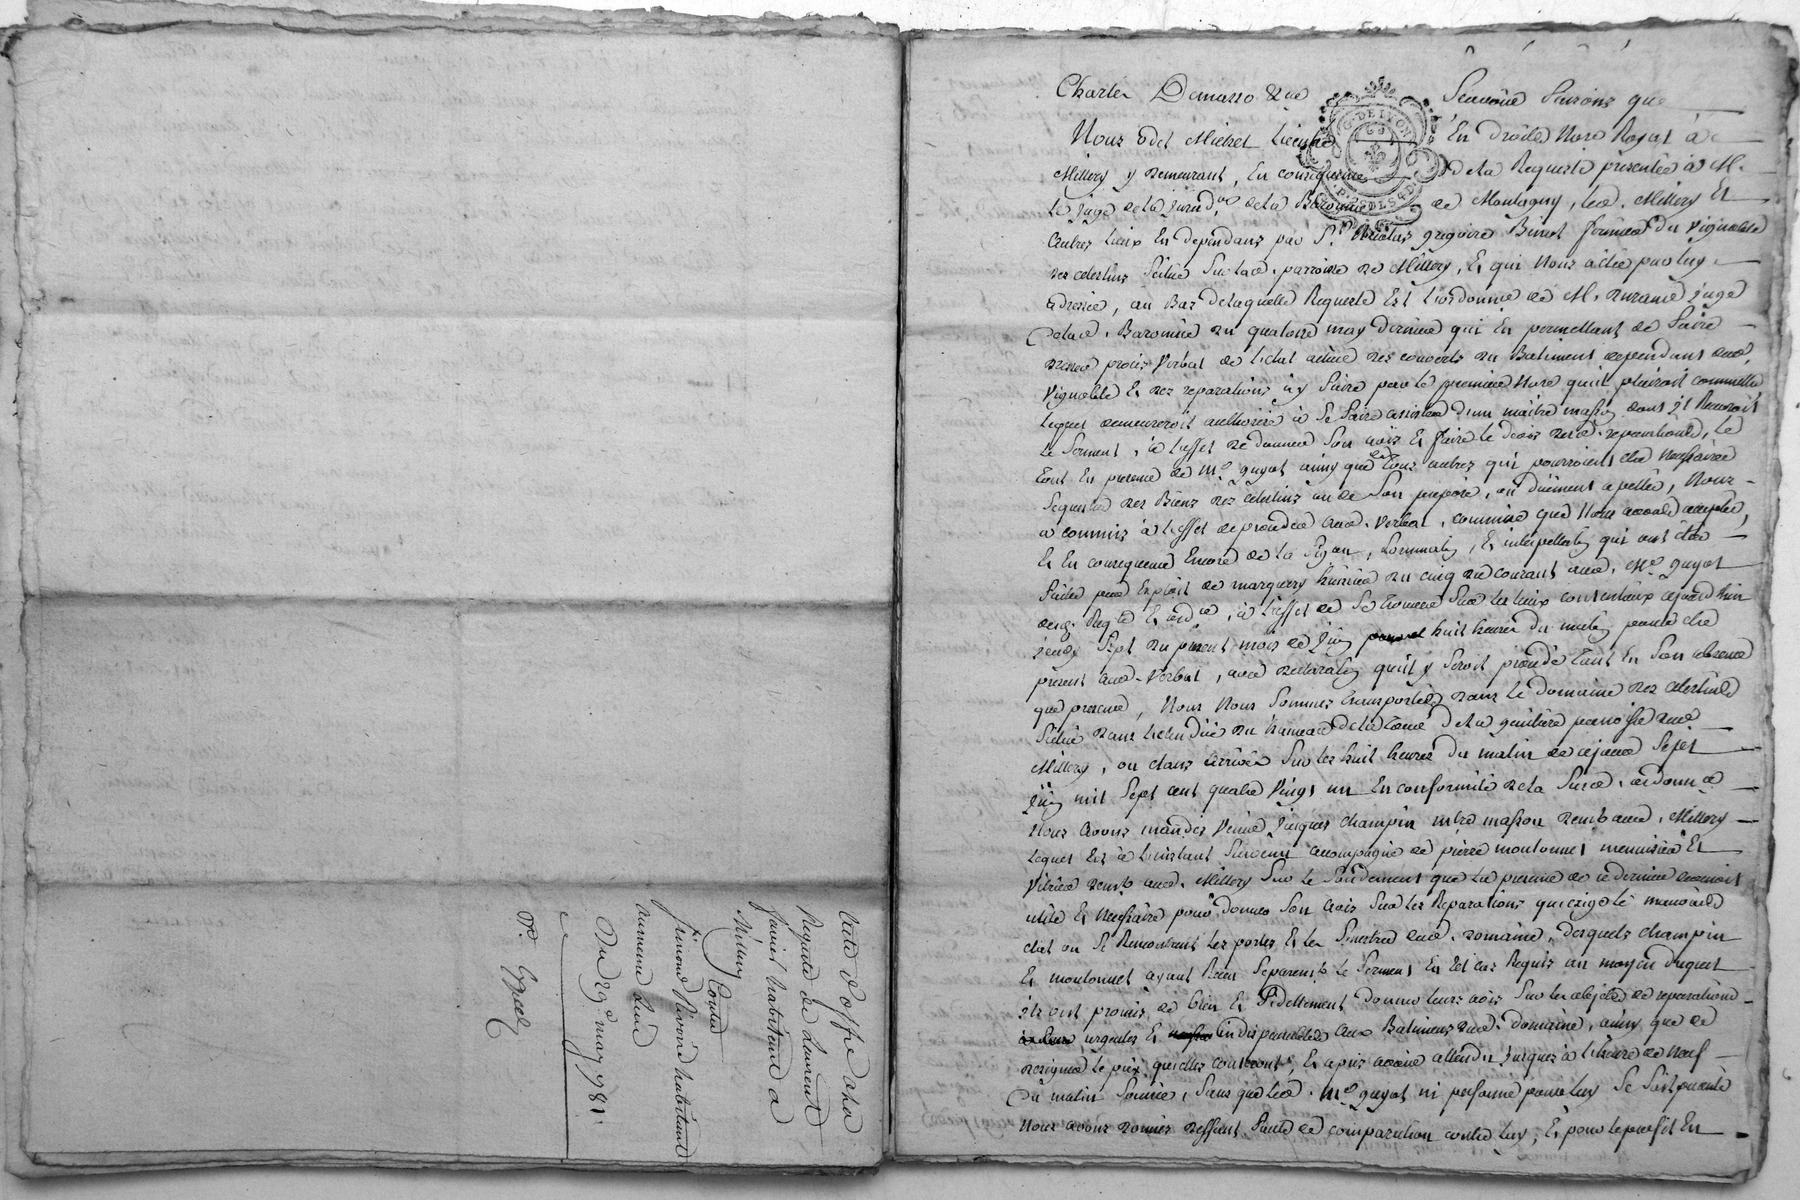 Acte d'offre a la
Requete de Laurent
Javit habitant a
Millery
Contre
Simond Rivoire habitant
au meme Lieu
Du 29e may 1781
Charles Demasso &ca Sçavoir Faisons que
G. DE LYON
Nous odet Michel Licentié En droits Nore Royal à
Millery y demeurant, En consequence de la Requeste presentée à M.
le Juge de la Jurid.on de la Baronnie de Montagny, led. Millery Et
autres lieux En dependans par Sr. Nicolas gregoire Binet fermier du Vignoble
des celestins Scitué Sur lad. parroisse de Millery, Et qui Nous a été par luy
adressée, au Bas de laquelle Requeste Est l'ordonnce de M. Durand Juge
de lad. Baronnie du quatorze may dernier qui En permettant de faire
dresser procès Verbal de l'etat actuel des couverts du Batiment dependant dud.
Vignoble Et des reparations à y faire par le premier Nore qu'il plairoit commettre
lequel demeureroit authorisé à Se faire assister d'un maitre masson dont il Recevroit
le Serment, à l'effet de donner Son avis Et faire le devis desd. reparations, le
tout En presence de Me guyot ainsy que de tous autres qui pourroient etre necessaires
Sequestre des Biens des celestins ou de Son preposé, ou düement apellé, Nous
a commis à l'effet de proceder aud. Verbal, commission que Nous avons acceptée,
Et En consequence Encore de la Signon, Sommation, Et interpellation qui ont été
faites par Exploit de marguery huissier du cinq du courant aud. Me guyot
desd. Reqte Et ordce, à l'effet de Se trouver Sur les lieux contentieux cejourd'huy
jeudy Sept du present mois de Juin huit heures du matin pour être
present aud. Verbal, avec declaration qu'il y Seroit procédé tant En Son absence
que presence, Nous Nous Sommes transportés dans le domaine des celestins
Scitué dans l'etendüe du hameau de la Tour de la gallière parroisse dud.
Millery, ou étans arrivés Sur les huit heures du matin de cejourd. Sept
Juin mil Sept cent quatre Vingt un En conformité de la Susd. ordonnce
Nous avons mandés Venir Jacques champin mtre masson demt aud. Millery
lequel Est à l'instant Survenu accompagné de pierre moutonnet menuisier Et
Vitrier demt aud. Millery Sur le fondement que la presence de ce dernier devenoit
utile Et necessaire pour donner Son avis Sur les Reparations qu'exige le mauvais
etat ou Se Rencontrent les portes Et les fenetres dud. domaine, desquels champin
Et moutonnet ayant Reçu Separemt le Serment En tel cas Requis au moyen duquel
ils ont promis de bien Et fidellement donner leurs avis Sur les objets de reparations
urgentes Et indispensables aux Batimens dud. domaine, ainsy que de
designer le prix qu'elles couteront, Et après avoir attendu jusques à l'heure de neuf
du matin Sonnée, Sans que led. Me guyot ni personne pour luy Se Soit presenté
Nous avons donnés deffaut faute de comparution contre luy, Et pour le profit En